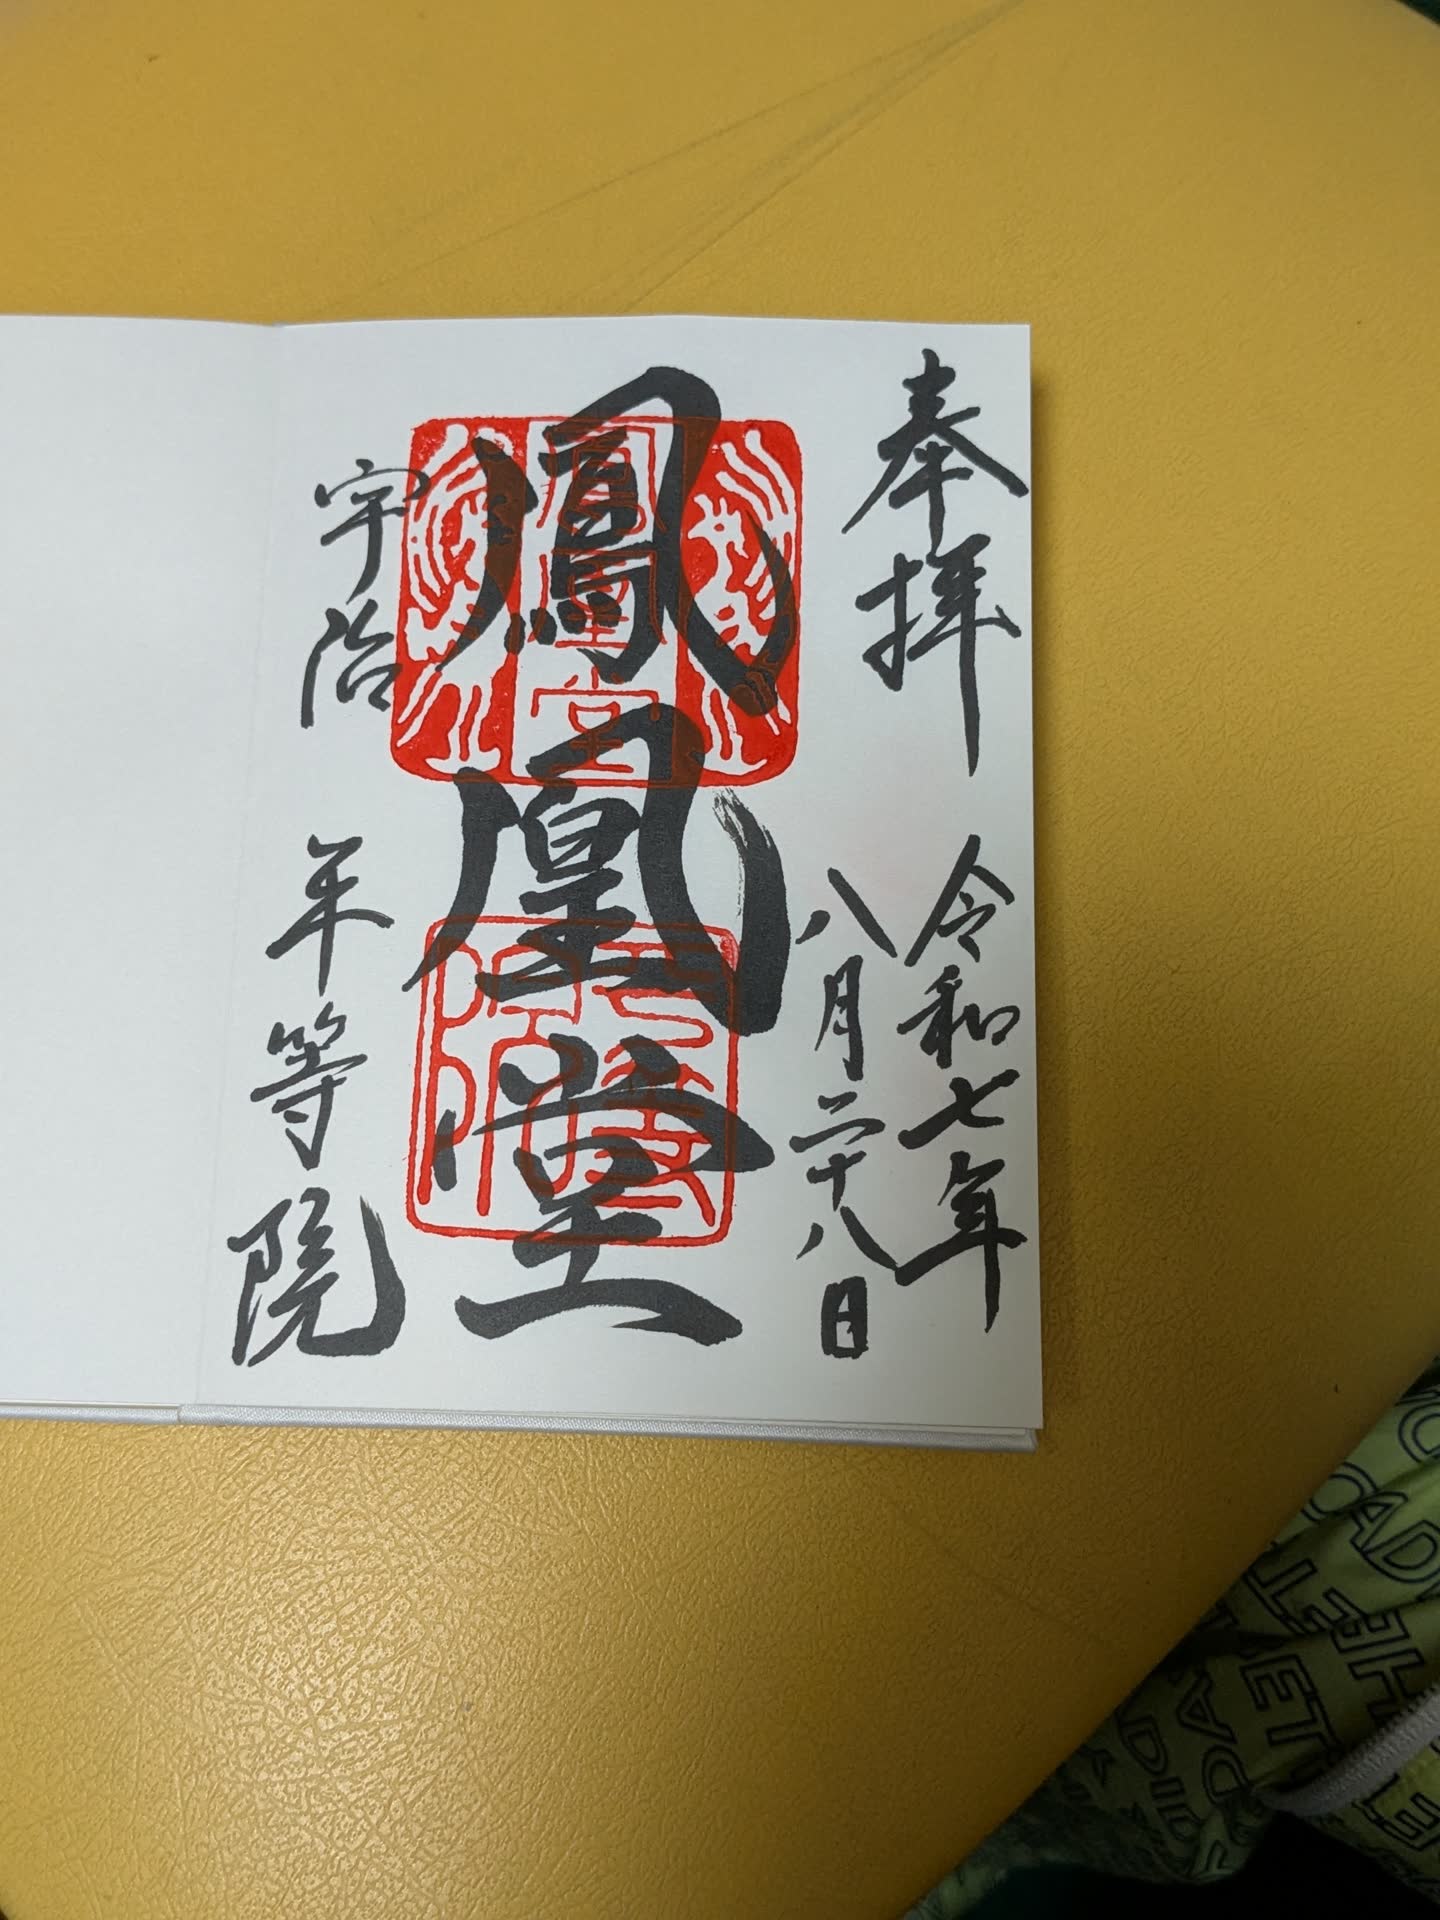 奉拝
令和七年
八月二十八日
鳳凰堂
宇治
平等院
鳳凰堂
平等院